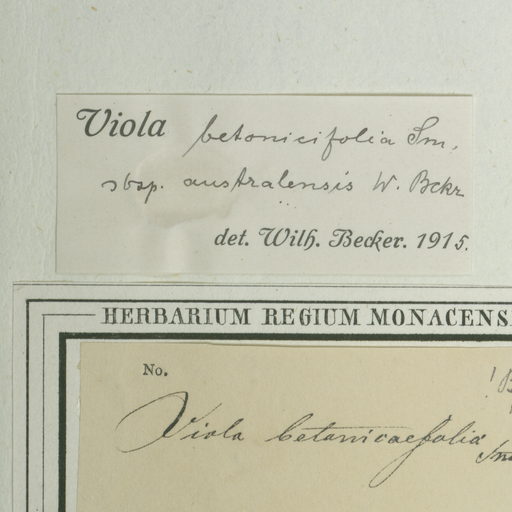 Viola betonicifolia Sm.
sbsp. australensis W. Bckr
det. Wilh. Becker. 1915.
HERBARIUM REGIUM MONACENS
No.
Viola betonicaefolia
Sm